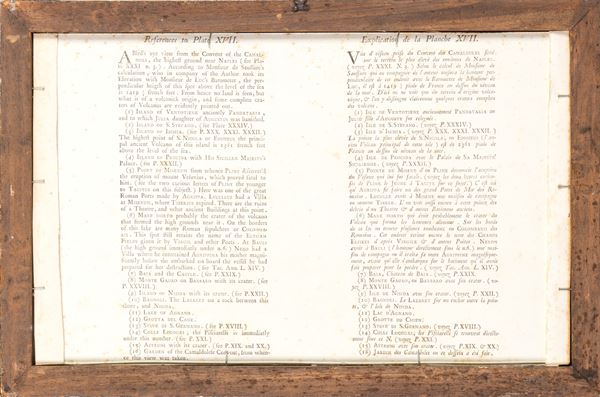 References to Plate XVII.
A Bird's eye view from the Convent of the CAMAL-
DOLI, the highest ground near NAPLES (see Pla-
te XXXI n. 3.) According to Monsieur de Saussure's
calculation, who in company of the Author took its
elevation with Monsieur de Luc's Barometer, the per-
pendicular heigth of this spot above the level of the sea
is 1419 french feet. From hence no land is seen, but
what is of a volcanick origin, and some complete cra-
ters of Volcanos are evidently pointed out.
(1) ISLAND OF VENTOTIENE anciently PANDATARIA,
and to which JULIA daughter of AUGUSTUS was banished.
(2) ISLAND OF S. STEFANO. (see Plate XXXIV.)
(3) ISLAND OF ISCHIA. (see P. XXX. XXXI. XXXII.)
The highest point of S. NICOLA or EPOMEUS the princi-
pal ancient Volcano of this island is 2361 french feet
above the level of the sea.
(4) ISLAND OF PROCITA with HIS SICILIAN MAJESTY'S
Palace. (see P. XXXII.)
(5) POINT OF MISENUM from whence PLINY discover'd
the eruption of mount Vesuvius, which proved fatal to
him; (see the two curious letters of PLINY the younger
to TACITUS on this subject.) Here was one of the great
Roman Ports made by AGRIPPA. LUCULLUS had a Villa
at MISENUM, where TIBERIUS expired. There are the ruins
of a Theater, and other ancient Buildings at this point.
(6) MARE MORTO probably the crater of the volcano
that formed the high grounds near it. On the borders
of this lake are many Roman sepulchres or COLUMBA-
RIA. This spot still retains the name of the ELYSIAN
FIELDS given it by VIRGIL and other Poets. At BAULI
(the high ground immediately under n.6.) NERO had a
Villa where he entertained AGRIPPINA his mother magni-
ficently before she embarked on board the vessel he had
prepared for her destruction. (see Tac. Ann. L. XIV.)
(7) BAYA and the CASTLE. (see P. XXIX.)
(8) MONTE GAURO OR BARBARO with its crater. (see
P. XXVIII.)
(9) ISLAND OF NISIDA with its crater. (see P. XXII.)
(10) BAGNOLI. The LAZARET on a rock between this
shore, and NISIDA.
(11) LAKE OF AGNANO.
(12) GROTTA DEL CANE.
(13) STOVE DI S. GERMANO. (see P. XVIII.)
(14) COLLI LEUCOGEI; the Pisciarelli is immediately
under this number. (see P. XXI.)
(15) ASTRUNI with its crater. (see P. XIX. and XX.)
(16) GARDEN of the Camaldolese Convent, from when-
ce this view was taken.
Explication de la Planche XVII.
VUE d'oiseau prise du Couvent des CAMALDULES situé
sur le terrein le plus élevé des environs de NAPLES.
(voyez P. XXXI. N. 3.) Selon le calcul de Monsieur de
Saussure qui en compagnie de l'auteur mesura la hauteur per-
pendiculaire de cet endroit avec le Barometre de Monsieur de
Luc, il est à 1419 pieds de France au dessus du niveau
de la mer. D'ici on ne voit que du terrein d'origine volca-
nique, & l'on y distingue clairement quelques crateres complets
de volcans.
(1) ISLE DE VENTOTIENE anciennement PANDATARIA où
JULIE fille d'AUGUSTE fut releguée.
(2) ISLE DE S. STEFANO. (voyez P. XXXIV.)
(3) ISLE D'ISCHIA. (voyez P. XXX. XXXI. XXXII.)
La pointe la plus élevée de S. NICOLAS, ou EPOMEUS (l'an-
cien Volcan principal de cette isle) est à 2361 pieds de
France au dessus du niveau de la mer.
(4) ISLE DE PROCITA avec le Palais de SA MAJESTÉ
SICILIENNE. (voyez P. XXXII.)
(5) POINTE DE MISENE d'où PLINE découvrit l'eruption
du Vésuve qui lui fut fatale (voyez les deux lettres curieu-
ses de PLINE le JEUNE à TACITE sur ce sujet.) C'est ici
qu'AGRIPPA fit faire un des grands Ports de Mer des Ro-
mains. LUCULLE avoit à MISENE une maison de campagne
où mourut TIBERE. L'on voit encore à cette pointe les
debris d'un Théatre & d'autres Batimens anciens.
(6) MARE MORTO qui étoit probablement le cratere du
Volcan qui forma les hauteurs voisines. Sur les bords
de ce lac on trouve plusieurs tombeaux ou COLOMBIERS des
Romains. Cet endroit retient encore le nom des CHAMPS
ELISÉES d'après VIRGILE & d'autres Poëtes. NERON
avoit à BAULI (l'hauteur directement sous le n.6.) une mai-
son de campagne où il traita sa mere AGRIPPINE magnifique-
ment, avant qu'elle s'embarqua sur le batiment qu'il avoit
fait preparer pour la perdre. (voyez Tac. Ann. L. XIV.)
(7) BAYA, Château de BAYA. (voyez P. XXIX.)
(8) MONTE GAURO, ou BARBARO avec son crater. (vo-
yez P. XXVIII.)
(9) ISLE DE NISIDA avec son crater. (voyez P. XXII.)
(10) BAGNOLI. Le LAZARET sur un rocher entre la poin-
te, & l'isle de NISIDA.
(11) LAC D'AGNANO.
(12) GROTTE DU CHIEN.
(13) STUVE DI S. GERMANO. (voyez P. XVIII.)
(14) COLLI LEUCOGEI, les Pisciarelli se trouvent directe-
ment sous ce N. (voyez P. XXI.)
(15) ASTRUNI avec son crater. (voyez P. XIX. & XX.)
(16) JARDIN des Camaldules où ce dessein a été fait.